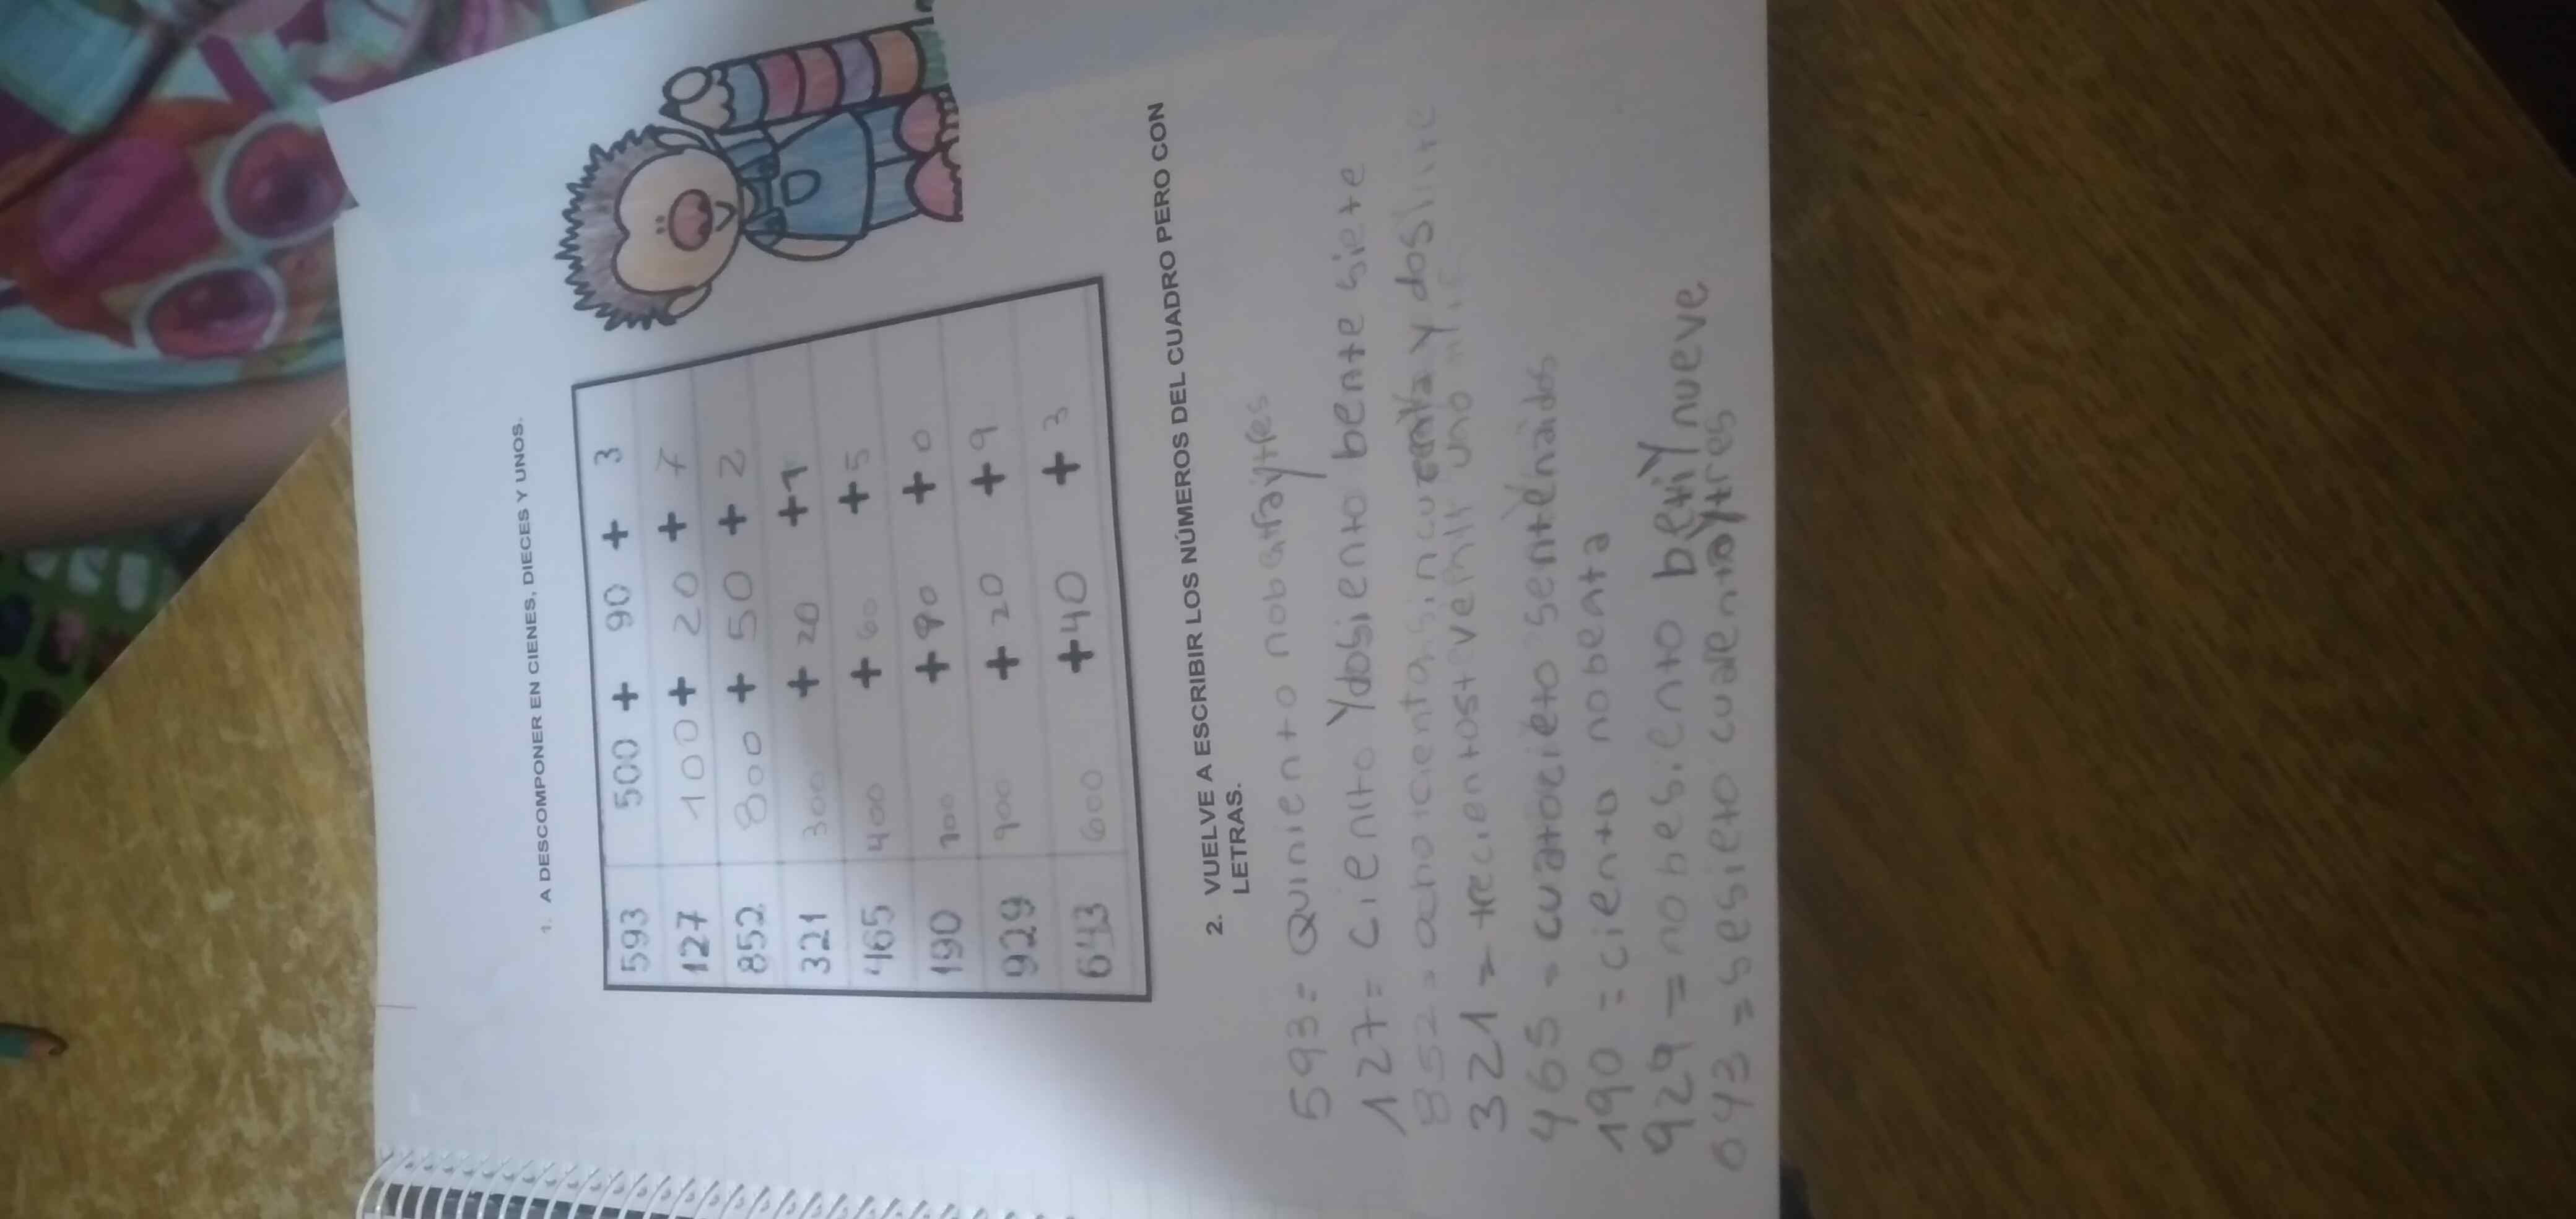 1. A DESCOMPONER EN CIENES, DIECES Y UNOS.
593 500 + 90 + 3
127 100 + 20 + 7
852 800 + 50 + 2
321 300 + 20 + 1
465 400 + 60 + 5
190 100 + 90 + 0
929 900 + 20 + 9
643 600 + 40 + 3
2. VUELVE A ESCRIBIR LOS NÚMEROS DEL CUADRO PERO CON
LETRAS.
593 = Quiniento
127 = ciento Ydosiento bente siete
852 = y dos
321 = trecientos
465 =
190 = ciento nobenta
929 = nobesiento betiY nueve
643 = sesieto cuarentaytres